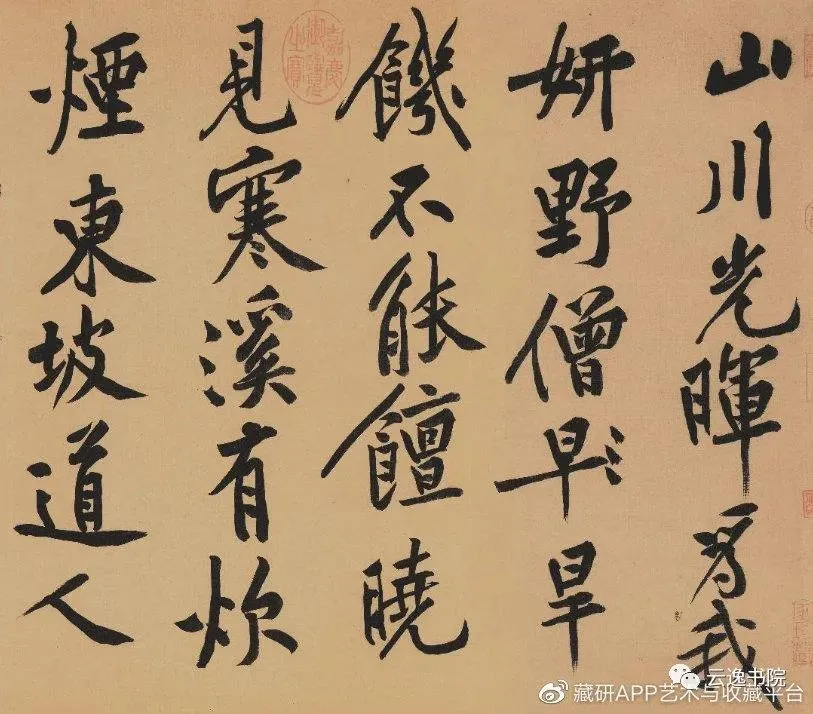 山川光暉為我
妍野僧早旱
饑不能饘曉
見寒溪有炊
煙東坡道人
嘉慶御覽之寶
云逸书院
藏研APP艺术与收藏平台